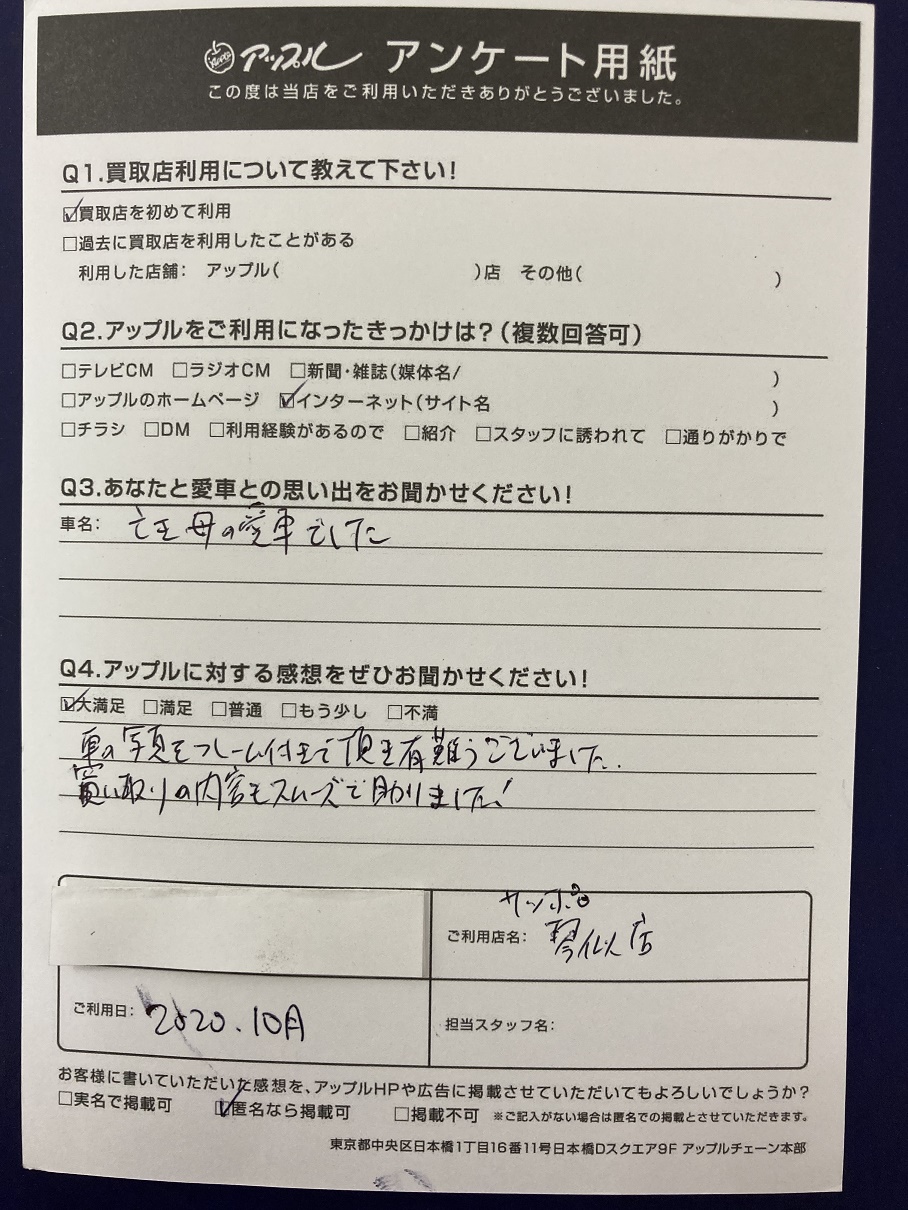 アップル アンケート用紙
この度は当店をご利用いただきありがとうございました。
Q1.買取店利用について教えて下さい!
☑買取店を初めて利用
□過去に買取店を利用したことがある
利用した店舗: アップル( )店 その他( )
Q2.アップルをご利用になったきっかけは?(複数回答可)
□テレビCM □ラジオCM □新聞・雑誌(媒体名/ )
□アップルのホームページ ☑インターネット(サイト名 )
□チラシ □DM □利用経験があるので □紹介 □スタッフに誘われて □通りがかりで
Q3.あなたと愛車との思い出をお聞かせください!
車名: 亡き母の愛車でした
Q4.アップルに対する感想をぜひお聞かせください!
☑大満足 □満足 □普通 □もう少し □不満
車の写真をフレーム付きで頂き有難うございました.
買い取りの内容もスムーズで助かりました!
サッポロ
ご利用店名: 琴似店
ご利用日: 2020.10月
担当スタッフ名:
お客様に書いていただいた感想を、アップルHPや広告に掲載させていただいてもよろしいでしょうか?
□実名で掲載可 ☑匿名なら掲載可 □掲載不可 ※ご記入がない場合は匿名での掲載とさせていただきます。
東京都中央区日本橋1丁目16番11号日本橋Dスクエア9F アップルチェーン本部